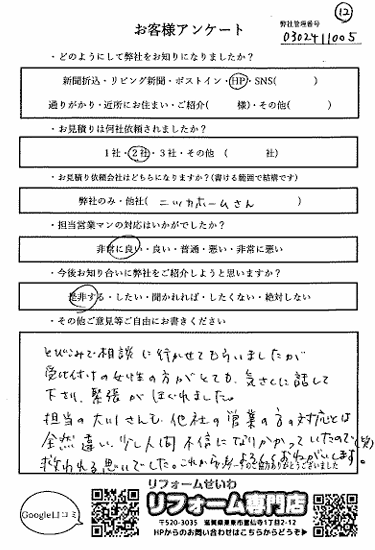 ⑫
お客様アンケート
弊社管理番号
0302411005
・どのようにして弊社をお知りになりましたか?
新聞折込・リビング新聞・ポストイン・HP・SNS( )
通りがかり・近所にお住まい・ご紹介( 様)・その他( )
・お見積りは何社依頼されましたか?
1社・2社・3社・その他 ( 社)
・お見積り依頼会社はどちらになりますか?(書ける範囲で結構です)
弊社のみ・他社( ニッカホームさん )
・担当営業マンの対応はいかがでしたか?
非常に良い・良い・普通・悪い・非常に悪い
・今後お知り合いに弊社をご紹介しようと思いますか?
是非する・したい・聞かれれば・したくない・絶対しない
・その他ご意見等ご自由にお書きください
とびこみで相談に行かせてもらいましたが
受け付けの女性の方がとても、気さくに話して
下さり、緊張がほぐれました。
担当の大川さんも、他社の営業の方の対応とは
全然違い、少し人間不信になりかかっていたので(笑)
救われる思いでした。これからもよろしくおねがいします。
アンケートのご協力ありがとうございました
リフォームせいわ
Google口コミ
リフォーム専門店
〒520-3035 滋賀県栗東市霊仙寺1丁目2-12
HPからのお問い合わせはこちらからどうぞ▶